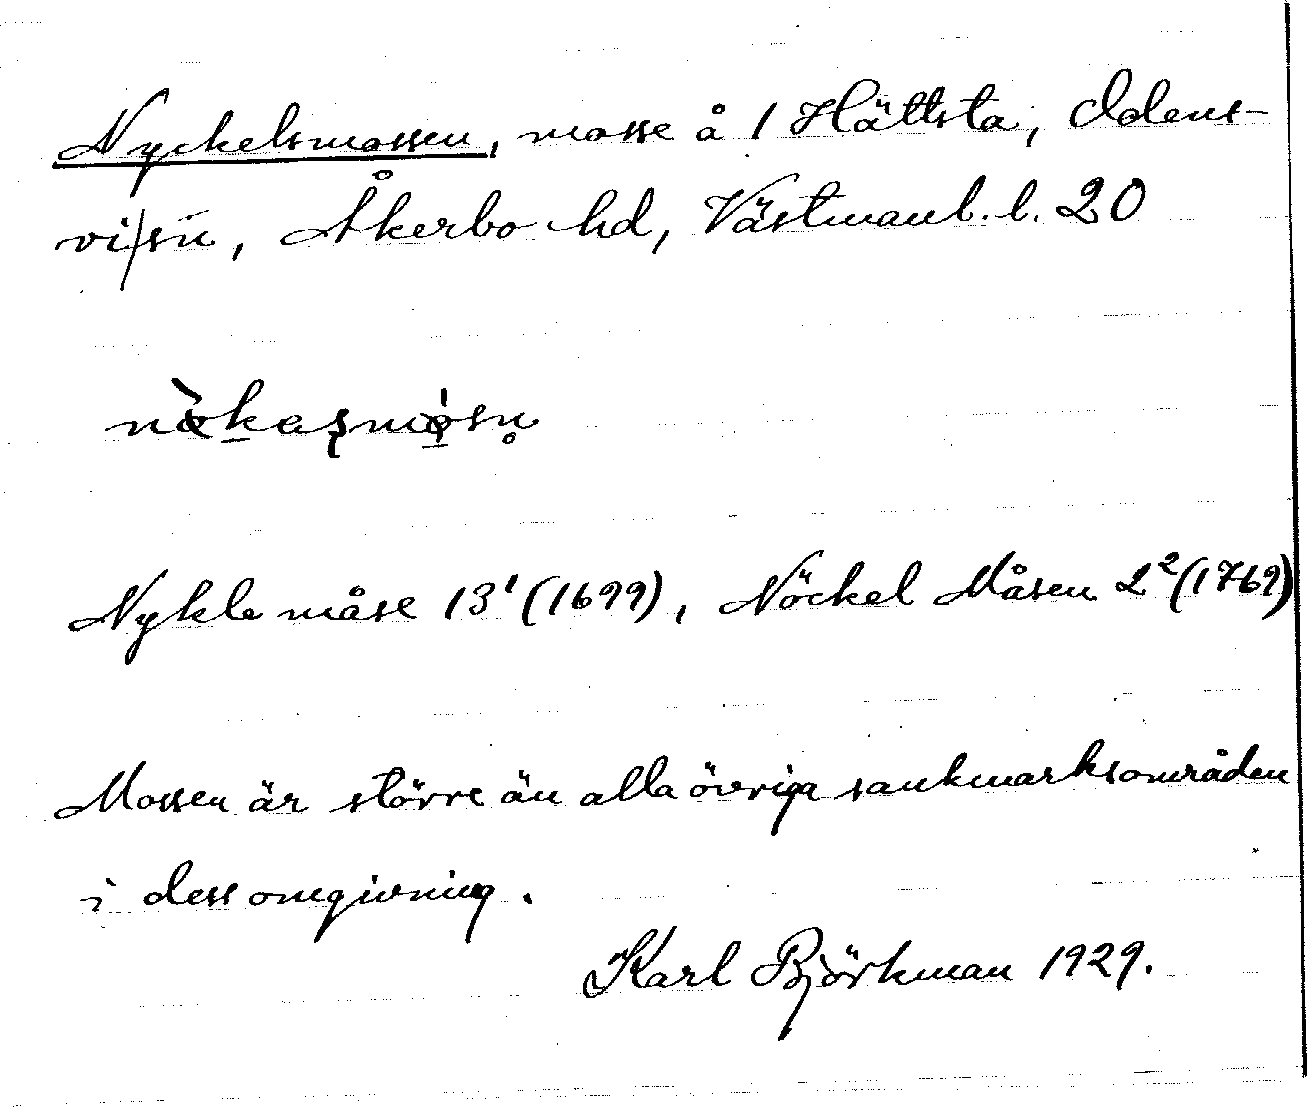 Nyckelsmossen, mosse å 1 Hättsta, Odens-
vi sn, Åkerbo hd, Västmanl. l. 20
Nykle måse 13¹ (1699), Nöckel Måsen 2² (1769)
Mossen är större än alla övriga sankmarksområden
i dess omgivning.
Karl Björkman 1929.